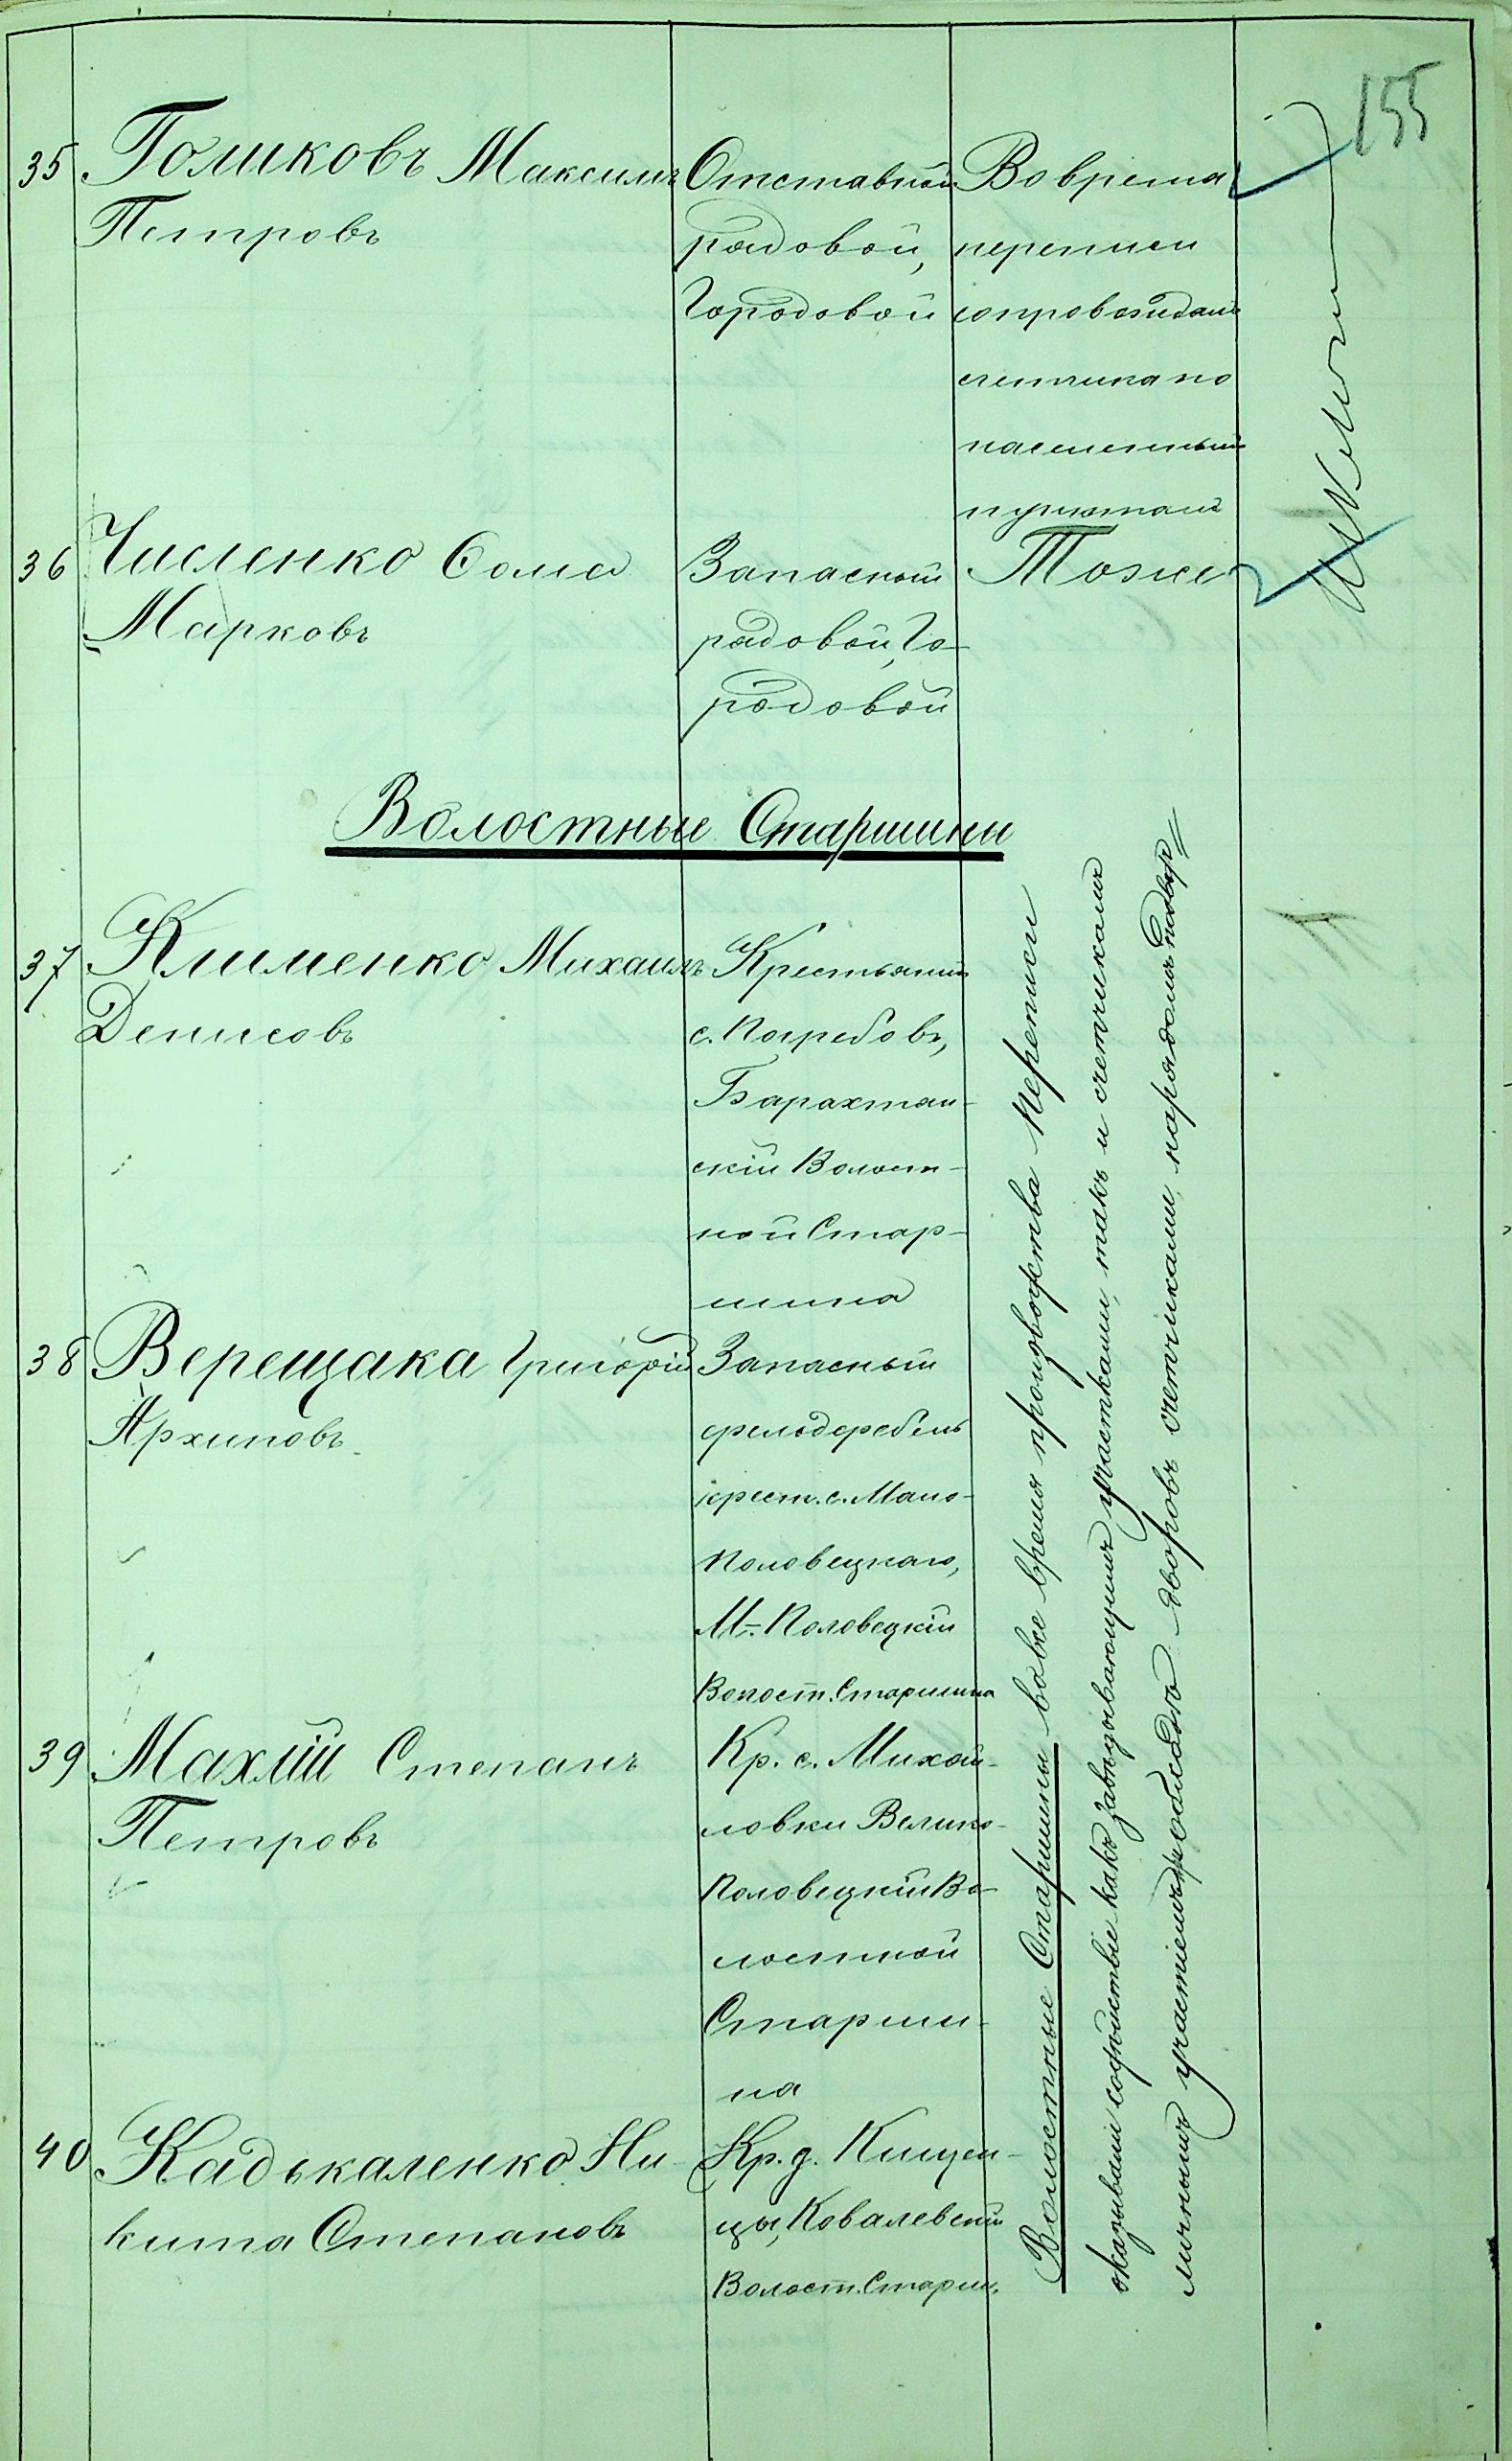 155
35 Голиковъ Максимъ
Петровъ
Отставной
рядовой,
Городовой
Во время
переписи
сопровождалъ
счетчика по
населеннымъ
пунктамъ
36 Численко Ѳома
Марковъ
Запасный
рядовой, Го-
родовой
Тоже
Волостные Старшины
37 Клименко Михаилъ
Денисовъ
Крестьянинъ
с. Погребовъ,
Барахтян-
скій Волост-
ной Стар-
шина
38 Верещака Григорій
Архиповъ
Запасный
фельдфебель
крест. с. Мало-
Половецкаго,
М-Половецкій
Волост. Старшина
39 Махлій Степанъ
Петровъ
Кр. с. Михай-
ловки Велико-
Половецкій Во-
лостной
Старши-
на
40 Кадькаленко Ни-
кита Степановъ
Кр. д. Кищен-
цы, Ковалевскій
Волост. Старш.
Волостные Старшины во все время производства переписи
оказывали содѣйствіе какъ завѣдывающимъ участками, такъ и счетчикамъ
личнымъ участіемъ дворовъ счетчиками, нарядомъ подвор